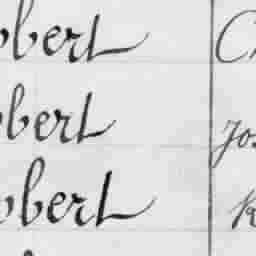 bert C
bert Jos
bert K